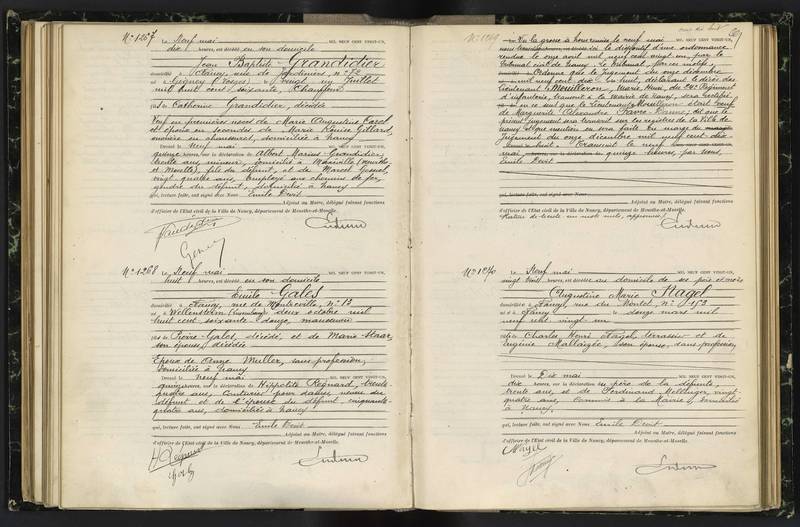 N° 1267
Le Neuf mai MIL NEUF CENT VINGT-UN,
dix heures, est décédé en son domicile
Jean Baptiste Grandidier
domicilié à Nancy, rue des Jardiniers, n° 72
né à Gigney (Vosges) le vingt un juillet
mil huit cent soixante, Chauffeur
fils de Catherine Grandidier, décédée
Veuf en premières noces de Marie Augustine Carel
et époux en secondes de Marie Louise Gillard,
ouvrière en chaussures, domiciliée à Nancy
Dressé le Neuf mai MIL NEUF CENT VINGT-UN,
quinze heures, sur la déclaration de Albert Marius Grandidier,
trente ans, mineur, domicilié à (Meurthe
et Moselle), fils du défunt, et de Marcel
vingt quatre ans, Employé aux chemins de fer,
gendre du défunt, domicilié à Nancy
qui, lecture faite, ont signé avec Nous Emile Devit
Adjoint au Maire, délégué faisant fonctions
d'officier de l'Etat civil de la Ville de Nancy, département de Meurthe-et-Moselle.
Grandidier
N° 1268
Le Neuf mai MIL NEUF CENT VINGT-UN,
huit heures, est décédé en son domicile
Emile Gales
domicilié à Nancy, rue de n° 13
né à Wellenstein (Luxembourg) deux octobre mil
huit cent soixante douze, manœuvre
fils de Pierre Gales, décédé, et de Marie Haar,
son épouse, décédée
Epoux de Anne Muller, sans profession,
domiciliée à Nancy
Dressé le neuf mai MIL NEUF CENT VINGT-UN,
quinze heures, sur la déclaration de Hippolyte Regnard, trente
quatre ans, Couturier pour dames, neveu du
défunt et de l'épouse du défunt, cinquante
quatre ans, domiciliés à Nancy
qui, lecture faite, ont signé avec Nous Emile Devit
Adjoint au Maire, délégué faisant fonctions
d'officier de l'Etat civil de la Ville de Nancy, département de Meurthe-et-Moselle.
H Regnard
N° 1269
Vu la grosse à nous remise le neuf mai MIL NEUF CENT VINGT-UN,
le dispositif d'une ordonnance
rendue le onze avril mil neuf cent vingt un par le
Tribunal civil de Nancy, "Le Tribunal, Par ces motifs,
Ordonne que le Jugement du onze décembre
mil neuf cent dix huit, déclarant le décès du
Lieutenant Mouilleron, Marie, Henri, du Régiment
d'infanterie, transcrit à la mairie de Nancy, sera rectifié
en ce sens que le Lieutenant Mouilleron était veuf
de Marguerite Alexandre Anne; dit que le
présent jugement sera transcrit sur les registres de la Ville de
Nancy & que mention en sera faite en marge du
jugement du onze décembre mil neuf cent dix
huit. Transcrit le neuf
mai, quinze heures, par nous,
Emile Devit
qui, lecture faite, ont signé avec Nous
Adjoint au Maire, délégué faisant fonctions
d'officier de l'Etat civil de la Ville de Nancy, département de Meurthe-et-Moselle.
N° 1270
Le Neuf mai MIL NEUF CENT VINGT-UN,
vingt heures, est décédée au domicile de ses père et mère
Augustine Marie Nagel
domiciliée à Nancy, rue du Montet, n° 153
née à Nancy le douze mars mil
neuf cent vingt un
fille de Charles Henri Nagel, terrassier et de
Eugénie son épouse, sans profession,
Dressé le Dix mai MIL NEUF CENT VINGT-UN,
dix heures, sur la déclaration du père de la défunte,
trente ans, et de Ferdinand vingt
quatre ans, Commis à la Mairie, domiciliés
à Nancy
qui, lecture faite, ont signé avec Nous Emile Devit
Adjoint au Maire, délégué faisant fonctions
d'officier de l'Etat civil de la Ville de Nancy, département de Meurthe-et-Moselle.
Nagel